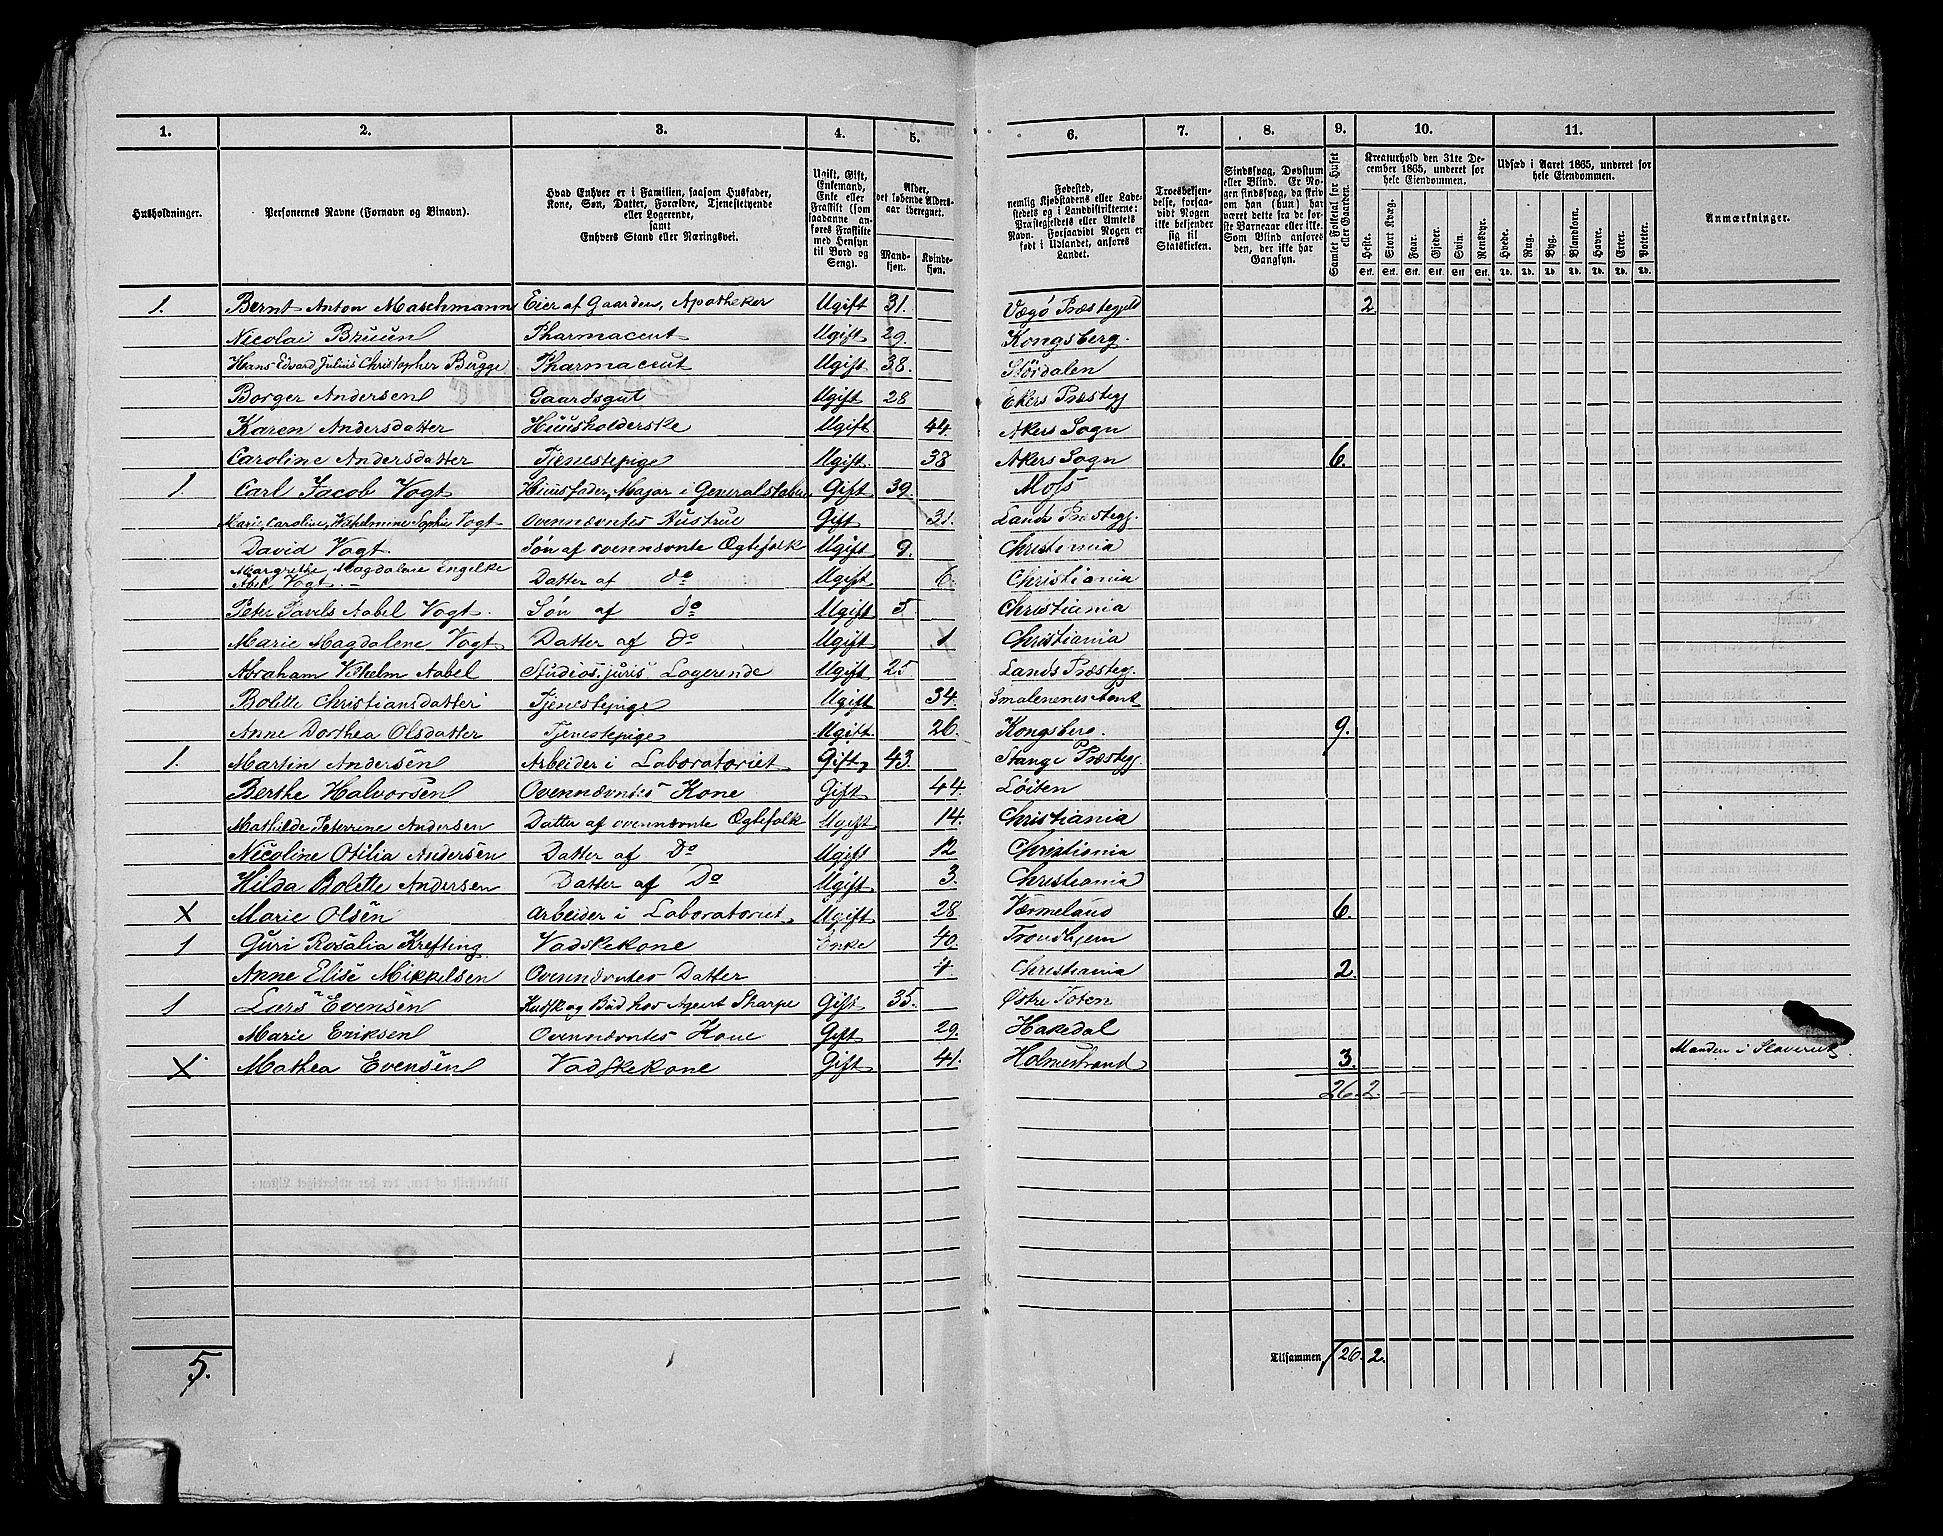 1. 2. 3. 4. 5. 6. 7. 8. 9. 10. 11.
Husholdninger.
Personernes Navne (Fornavn og Binavn).
Hvad Enhver er i Familien, saasom Husfader,
Kone, Søn, Datter, Forældre, Tjenestetyende
eller Logerende,
samt
Enhvers Stand eller Næringsvei.
Ugift, Gift,
Enkemand,
Enke eller
Fraskilt (som
saadanne an-
føres Fraskilte
med Hensyn
til Bord og
Seng).
Alder,
det løbende Alders-
aar iberegnet.
Mand-
kjøn.
Kvinde-
kjøn.
Fødested,
nemlig Kjøbstadens eller Lade-
stedets og i Landdistrikterne:
Præstegjeldets eller Amtets
Navn. Forsaavidt Nogen er
født i Udlandet, anføres
Landet.
Troesbekjen-
delse, forsaa-
vidt Nogen
ikke bekjender
sig til
Statskirken.
Sindssvag, Døvstum
eller Blind. Er No-
gen sindssvag, da skriv
om han (hun) har
været dette fra de før-
ste Barneaar eller ikke.
Som Blind anføres
den, der ikke har
Gangsyn.
Samlet Folketal for Huset eller Gaarden.
Kreaturhold den 31te De-
cember 1865, underet for
hele Eiendommen.
Heste. Stort Kvæg. Faar. Gjeder. Svin. Rensdyr.
Stk. Stk. Stk. Stk. Stk. Stk.
Udsæd i Aaret 1865, underet for
hele Eiendommen.
Hvede. Rug. Byg. Blandkorn. Havre. Erter. Poteter.
Td. Td. Td. Td. Td. Td. Td.
Anmærkninger.
1. Bernt Anton Maschmann Eier af Gaarden, Apotheker Ugift 31. Vægø Præstegjeld 2
Nicolai Bruun Pharmaceut Ugift 29. Kongsberg.
Hans Edvard Julius Christopher Bugge Pharmaceut Ugift 38. Stördalen
Borger Andersen Gaardsgut Ugift 28 Ekers Præstegj
Karen Andersdatter Huusholderske Ugift 44. Akers Sogn
Caroline Andersdatter Tjenestepige Ugift. 38 Akers Sogn 6.
1. Carl Jacob Vogt Huusfader, Major i Generalstaben Gift 39. Moss
Marie, Caroline, Vilhelmine Sophie Vogt Ovennævntes Hustrue Gift 31. Lands Præstegj.
David Vogt Søn af ovennævnte Ægtefolk Ugift 9. Christiania
Margrethe Magdalene Engelke
Abel Vogt. — Datter af do Ugift 6. Christiania
Peter Pavels Aabel Vogt. Søn af do Ugift 5. Christiania
Marie Magdalene Vogt Datter af do Ugift 1 Christiania
Abraham Vilhelm Aabel Studios. juris Logerende Ugift 25 Lands Præstegj
Bolette Christiansdatter Tjenestepige Ugift 34. Smalenenes Amt
Anne Dorthea Olsdatter Tjenestepige Ugift 26. Kongsberg. 9.
1. Martin Andersen Arbeider i Laboratoriet Gift 43. Stange Præstegj
Berthe Halvorsen Ovennævntes Kone Gift 44. Löiten
Mathilde Peterrine Andersen Datter af ovennævnte Ægtefolk Ugift 14. Christiania
Nicoline Otilia Andersen Datter af Do Ugift 12 Christiania
Hilda Bolette Andersen Datter af Do Ugift 3. Christiania
X Marie Olsen Arbeider i Laboratoriet Ugift 28 Værmeland 6.
1 Guri Rosalia Krefting Vadskekone Enke 40. Trondhjem
Anne Elise Mikkelsen Ovennævntes Datter 4. Christiania 2.
1 Lars Evensen Kudsk og Bud hos Agent Sharpe Gift 35. Østre Toten
Marie Eriksen Ovennævntes Kone Gift 29. Hakedal
X Mathea Evensen Vadskekone Gift 41. Holmestrand 3. Manden i Slaveriet
26. 2.
5. Tilsammen 26. 2.